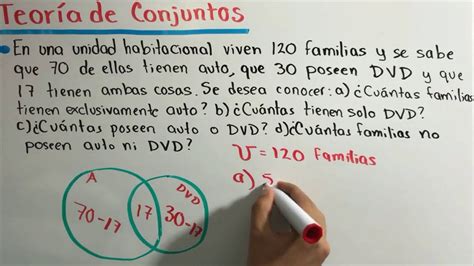 Teoría de Conjuntos
• En una unidad habitacional viven 120 familias y se sabe
que 70 de ellas tienen auto, que 30 poseen DVD y que
17 tienen ambas cosas. Se desea conocer: a) ¿Cuántas familias
tienen exclusivamente auto? b) ¿Cuántas tienen solo DVD?
c) ¿Cuántas poseen auto o DVD? d) ¿Cuántas familias no
poseen auto ni DVD?
U = 120 Familias
a) S
A
DVD
70-17 17 30-17